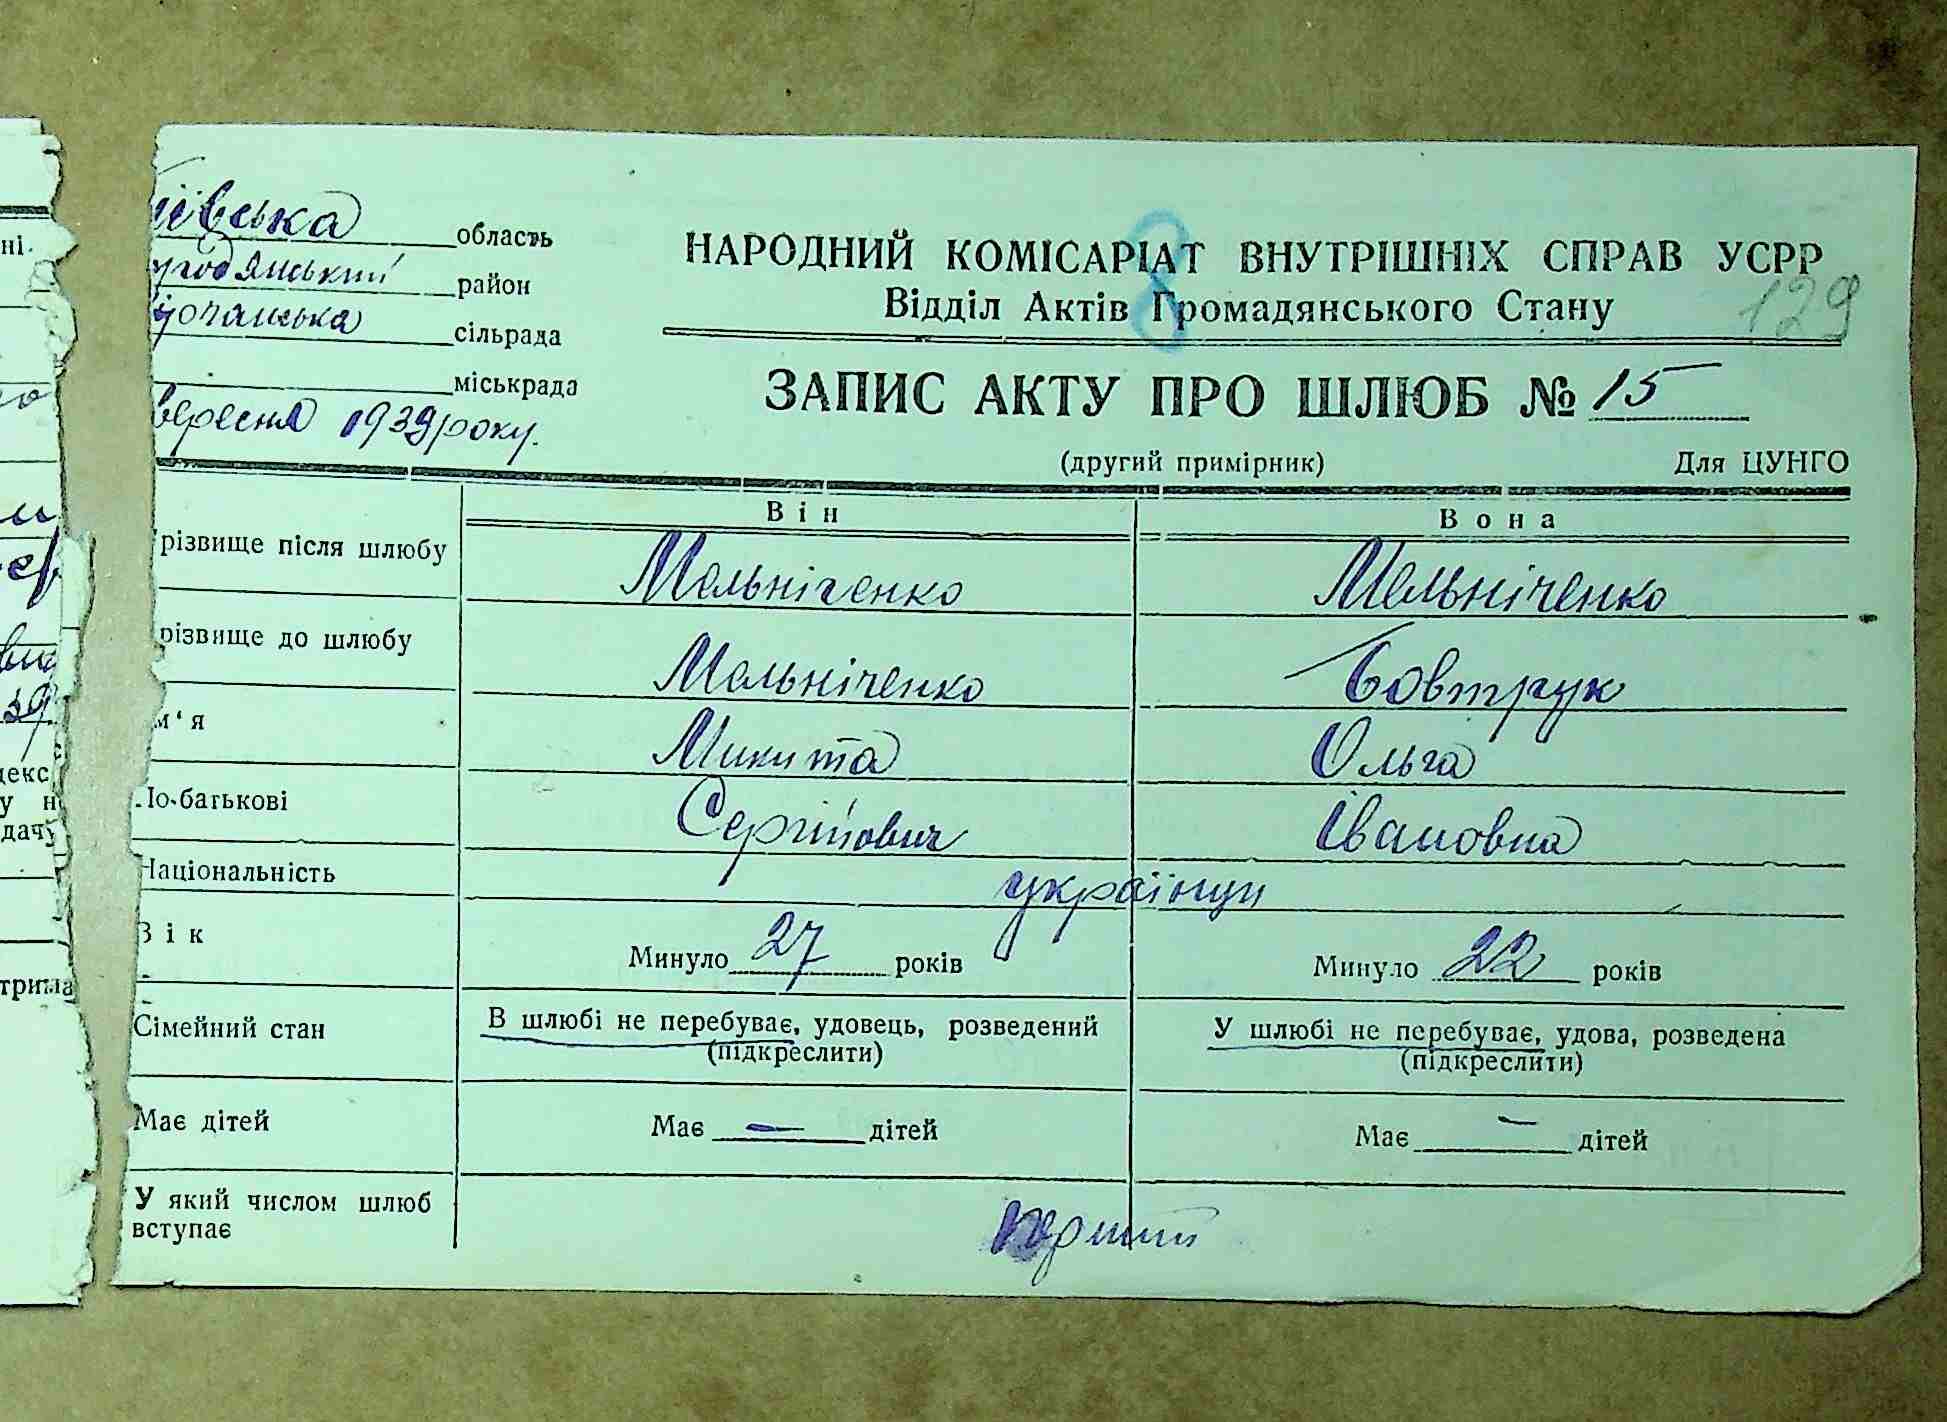 ївська область
район
сільрада
міськрада
вересня 1939 року.
НАРОДНИЙ КОМІСАРІАТ ВНУТРІШНІХ СПРАВ УСРР
Відділ Актів Громадянського Стану
8
129
ЗАПИС АКТУ ПРО ШЛЮБ № 15
(другий примірник) Для ЦУНГО
Він Вона
різвище після шлюбу Мельніченко Мельніченко
різвище до шлюбу Мельніченко Бовтрук
м'я Микита Ольга
По-батькові Сергійович Івановна
Національність українци
Вік Минуло 27 років Минуло 22 років
Сімейний стан В шлюбі не перебуває, удовець, розведений У шлюбі не перебуває, удова, розведена
(підкреслити) (підкреслити)
Має дітей Має — дітей Має — дітей
У який числом шлюб
вступає перший